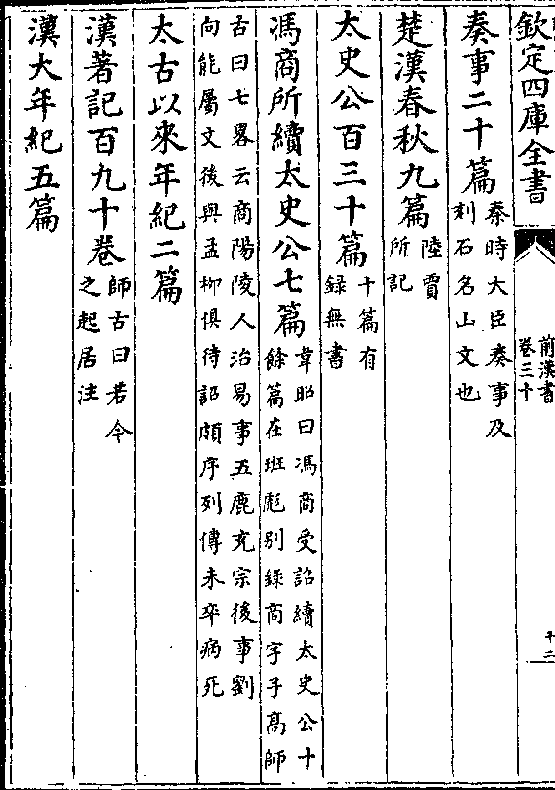 欽定四庫全書
前漢書
卷三十
十二
奏事二十篇
秦時大臣奏事及
刻石名山文也
楚漢春秋九篇
陸賈
所記
太史公百三十篇
十篇有
録無書
馮商所續太史公七篇
韋昭曰馮商受詔續太史公十
餘篇在班彪别錄商字子髙師
古曰七畧云商陽陵人治易事五鹿充宗後事劉
向能屬文後與孟柳俱待詔頗序列傳未卒病死
太古以來年紀二篇
漢著記百九十卷
師古曰若今
之起居注
漢大年紀五篇